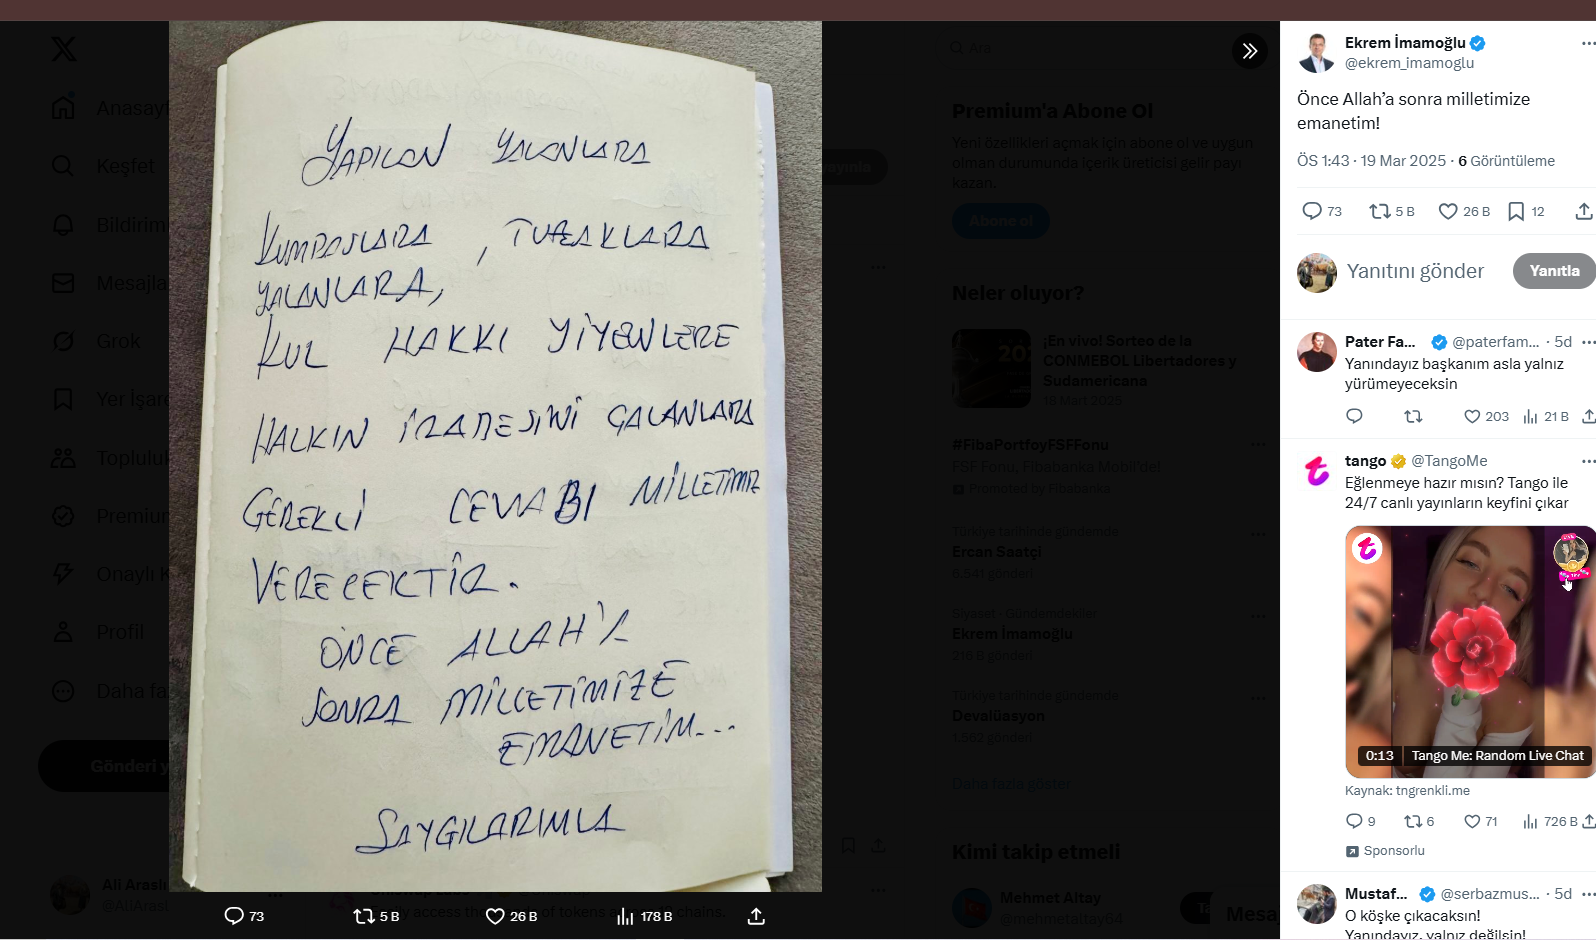 YAPILAN YALANLARA
KUMPASLARA, TUZAKLARA
YALANLARA,
KUL HAKKI YİYENLERE
HALKIN İRADESİNİ ÇALANLARA
GEREKLİ CEVABI MİLLETİMİZ
VERECEKTİR.
ÖNCE ALLAH'A
SONRA MİLLETİMİZE
EMANETİM...
SAYGILARIMLA
73
5 B
26 B
178 B
Anasayf
Keşfet
Bildirim
Mesajla
Grok
Yer İşare
Topluluk
Premium
Onaylı K
Profil
Daha fa
Gönderi y
Ali Araslı
@AliArasl
Ara
ayınla
Premium'a Abone Ol
Yeni özellikleri açmak için abone ol ve uygun
olman durumunda içerik üreticisi gelir payı
kazan.
Abone ol
Neler oluyor?
¡En vivo! Sorteo de la
CONMEBOL Libertadores y
Sudamericana
18 Mart 2025
#FibaPortfoyFSFFonu
FSF Fonu, Fibabanka Mobil'de!
Promoted by Fibabanka
Türkiye tarihinde gündemde
Ercan Saatçi
6.541 gönderi
Siyaset · Gündemdekiler
Ekrem İmamoğlu
216 B gönderi
Türkiye tarihinde gündemde
Devalüasyon
1.562 gönderi
Daha fazla göster
Kimi takip etmeli
Mehmet Altay
@mehmetaltay64
Mesa
Ekrem İmamoğlu
@ekrem_imamoglu
Önce Allah’a sonra milletimize
emanetim!
ÖS 1:43 · 19 Mar 2025 · 6 Görüntüleme
73
5 B
26 B
12
Yanıtını gönder
Yanıtla
Pater Fa... @paterfam... · 5d
Yanındayız başkanım asla yalnız
yürümeyeceksin
203
21 B
tango @TangoMe
Eğlenmeye hazır mısın? Tango ile
24/7 canlı yayınların keyfini çıkar
0:13 Tango Me: Random Live Chat
Kaynak: tngrenkli.me
9
6
71
726 B
Sponsorlu
Mustaf... @serbazmus... · 5d
O köşke çıkacaksın!
Yanındayız, yalnız değilsin!